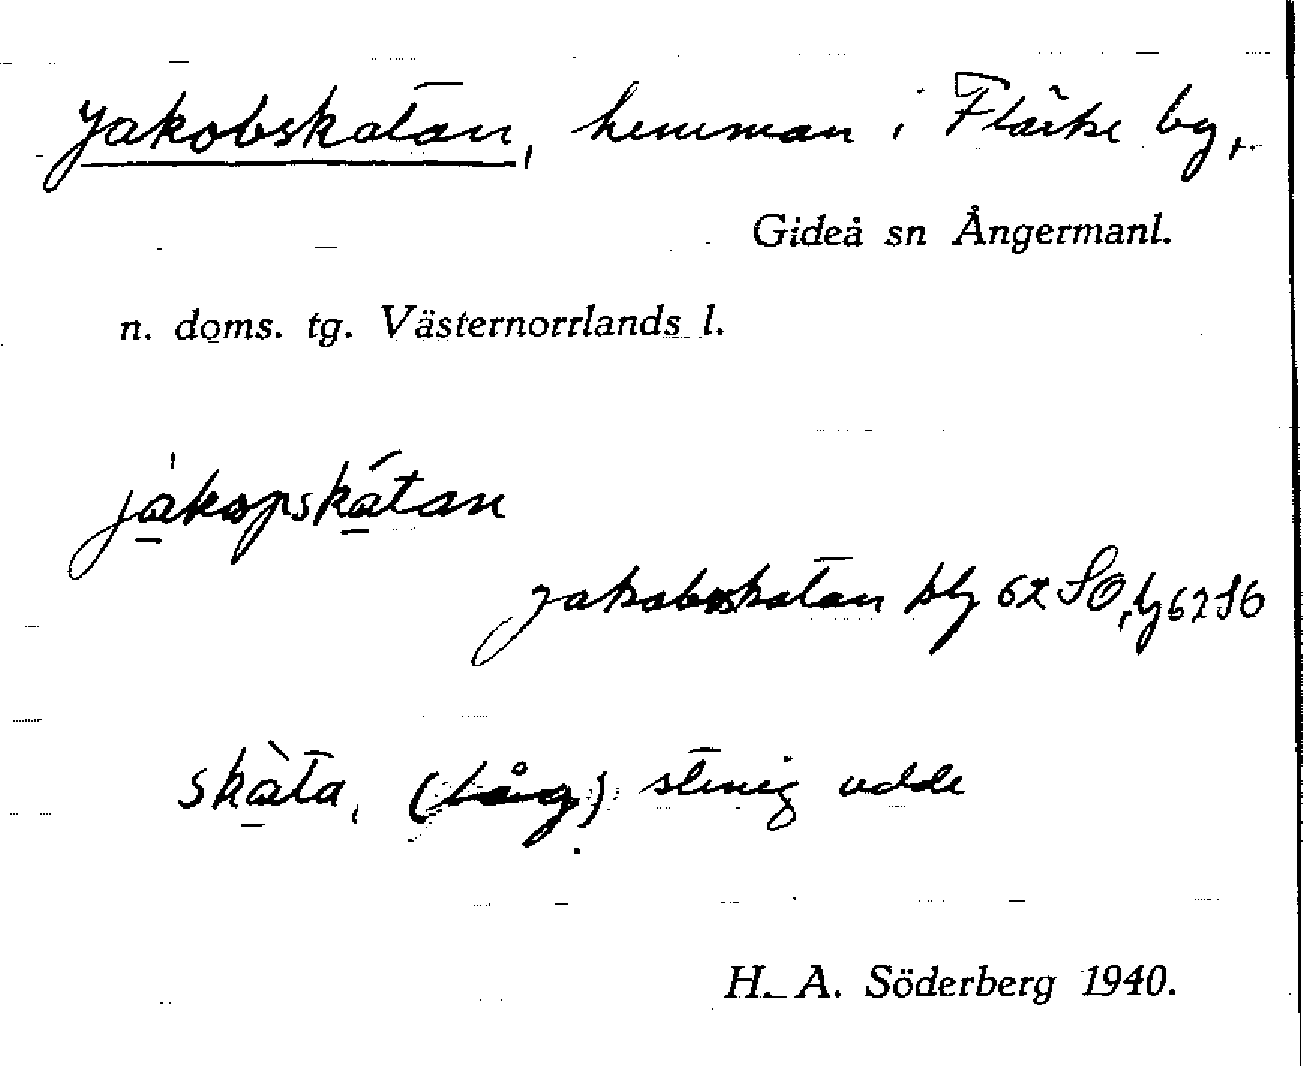 Jakobskatan, hemman i Flärke by,
Gideå sn Ångermanl.
n. doms. tg. Västernorrlands l.
jakopskatan
Jakobskatan blj 62 SO, lj 62 S6
skàta, (låg) stenig udde
H. A. Söderberg 1940.